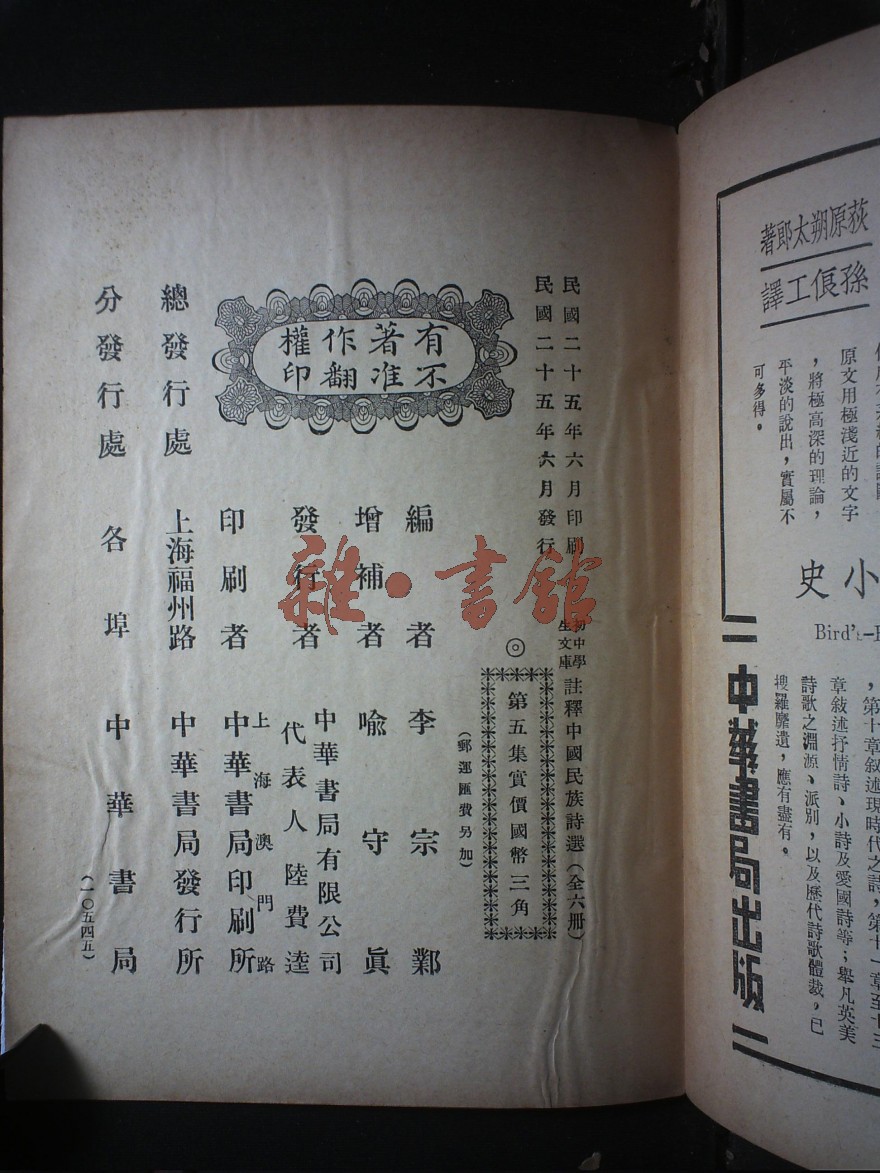 荻原朔太郎著
孫俍工譯
原文用極淺近的文字
，將極高深的理論，
平淡的說出，實屬不
可多得。
小史
Bird's-E
，第十章敘述現時代之詩，第十一章至十三
章敘述抒情詩、小詩及愛國詩等；舉凡英美
詩歌之淵源、派別，以及歷代詩歌體裁，已
搜羅靡遺，應有盡有。
中華書局出版
民國二十五年六月印刷
民國二十五年六月發行
初中學
生文庫
註釋中國民族詩選（全六册）
◎
第五集實價國幣三角
（郵運匯費另加）
有著作權
不准翻印
編者 李宗鄴
增補者 喻守眞
發行者
中華書局有限公司
代表人陸費逵
印刷者
上海澳門路
中華書局印刷所
總發行處 上海福州路 中華書局發行所
分發行處 各埠 中華書局
（一〇五四五）
雜·書館